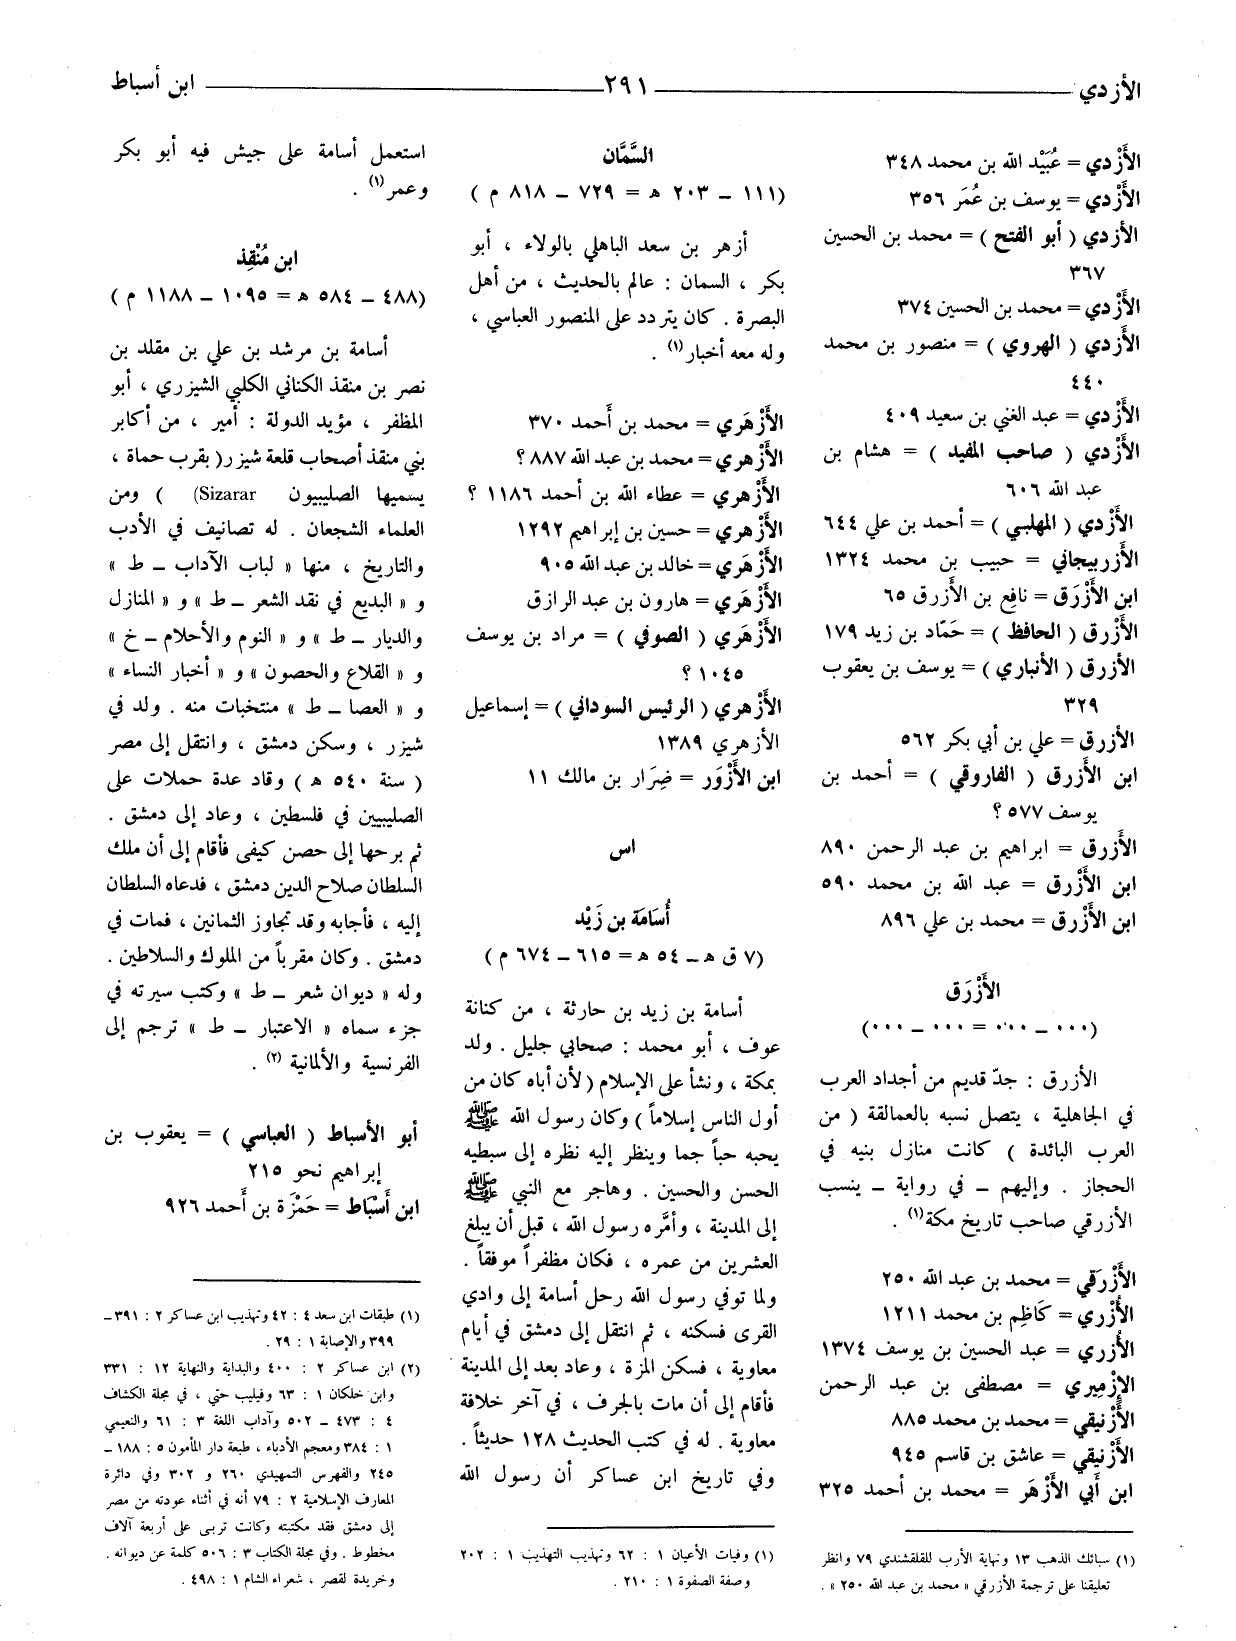 الأزدي ٢٩١ ابن أسباط
الأَزْدي = عُبَيْد الله بن محمد ٣٤٨
الأَزْدي = يوسف بن عُمَر ٣٥٦
الأزدي ( أبو الفتح ) = محمد بن الحسين
٣٦٧
الأَزْدي = محمد بن الحسين ٣٧٤
الأَزدي ( الهروي ) = منصور بن محمد
٤٤٠
الأَزْدي = عبد الغني بن سعيد ٤٠٩
الأَزْدي ( صاحب المفيد ) = هشام بن
عبد الله ٦٠٦
الأَزْدي ( المهلبي ) = أحمد بن علي ٦٤٤
الأَزربيجاني = حبيب بن محمد ١٣٢٤
ابن الأَزْرَق = نافع بن الأزرق ٦٥
الأزرق ( الحافظ ) = حَمّاد بن زيد ١٧٩
الأزرق ( الأنباري ) = يوسف بن يعقوب
٣٢٩
الأزرق = علي بن أبي بكر ٥٦٢
ابن الأَزرق ( الفاروقي ) = أحمد بن
يوسف ٥٧٧ ؟
الأَزرق = ابراهيم بن عبد الرحمن ٨٩٠
ابن الأَزْرق = عبد الله بن محمد ٥٩٠
ابن الأَزْرق = محمد بن علي ٨٩٦
الأَزْرَق
(٠٠٠ ــ ٠٠٠ = ٠٠٠ ــ ٠٠٠)
الأزرق : جدّ قديم من أجداد العرب
في الجاهلية ، يتصل نسبه بالعمالقة ( من
العرب البائدة ) كانت منازل بنيه في
الحجاز . وإليهم ــ في رواية ــ ينسب
الأزرقي صاحب تاريخ مكة(١) .
الأَزْرَقي = محمد بن عبد الله ٢٥٠
الأُزْري = كَاظِم بن محمد ١٢١١
الأُزري = عبد الحسين بن يوسف ١٣٧٤
الإِزْمِيري = مصطفى بن عبد الرحمن
الأَزْنيقي = محمد بن محمد ٨٨٥
الأَزْنيقي = عاشق بن قاسم ٩٤٥
ابن أَبي الأَزْهَر = محمد بن أحمد ٣٢٥
(١) سبائك الذهب ١٣ ونهاية الأرب للقلقشندي ٧٩ وانظر
تعليقنا على ترجمة الأزرقي « محمد بن عبد الله ٢٥٠ » .
السَّمَّان
(١١١ ــ ٢٠٣ ه = ٧٢٩ ــ ٨١٨ م )
أزهر بن سعد الباهلي بالولاء ، أبو
بكر ، السمان : عالم بالحديث ، من أهل
البصرة . كان يتردد على المنصور العباسي ،
وله معه أخبار(١) .
الأَزْهَري = محمد بن أَحمد ٣٧٠
الأَزْهري = محمد بن عبد الله ٨٨٧ ؟
الأَزْهري = عطاء الله بن أحمد ١١٨٦ ؟
الأَزْهري = حسين بن إبراهيم ١٢٩٢
الأَزْهَري = خالد بن عبد الله ٩٠٥
الأَزْهَري = هارون بن عبد الرازق
الأَزْهَري ( الصوفي ) = مراد بن يوسف
١٠٤٥ ؟
الأَزْهري ( الرئيس السوداني ) = إسماعيل
الأزهري ١٣٨٩
ابن الأَزْوَر = ضِرَار بن مالك ١١
اس
أُسَامَة بن زَيْد
(٧ ق ه ــ ٥٤ ه = ٦١٥ ــ ٦٧٤ م )
أسامة بن زيد بن حارثة ، من كنانة
عوف ، أبو محمد : صحابي جليل . ولد
بمكة ، ونشأ على الإسلام ( لأن أباه كان من
أول الناس إسلاماً ) وكان رسول الله ﷺ
يحبه حباً جما وينظر إليه نظره إلى سبطيه
الحسن والحسين . وهاجر مع النبي ﷺ
إلى المدينة ، وأمَّره رسول الله ، قبل أن يبلغ
العشرين من عمره ، فكان مظفراً موفقاً .
ولما توفي رسول الله رحل أسامة إلى وادي
القرى فسكنه ، ثم انتقل إلى دمشق في أيام
معاوية ، فسكن المزة ، وعاد بعد إلى المدينة
فأقام إلى أن مات بالجرف ، في آخر خلافة
معاوية . له في كتب الحديث ١٢٨ حديثاً .
وفي تاريخ ابن عساكر أن رسول الله
(١) وفيات الأعيان ١ : ٦٢ وتهذيب التهذيب ١ : ٢٠٢
وصفة الصفوة ١ : ٢١٠ .
استعمل أسامة على جيش فيه أبو بكر
وعمر(١) .
ابن مُنْقِذ
(٤٨٨ ــ ٥٨٤ ه = ١٠٩٥ ــ ١١٨٨ م )
أسامة بن مرشد بن علي بن مقلد بن
نصر بن منقذ الكناني الكلبي الشيزري ، أبو
المظفر ، مؤيد الدولة : أمير ، من أكابر
بني منقذ أصحاب قلعة شيزر ( بقرب حماة ،
يسميها الصليبيون Sizarar) ) ومن
العلماء الشجعان . له تصانيف في الأدب
والتاريخ ، منها « لباب الآداب ــ ط »
و « البديع في نقد الشعر ــ ط » و « المنازل
والديار ــ ط » و « النوم والأحلام ــ خ »
و « القلاع والحصون » و « أخبار النساء »
و « العصا ــ ط » منتخبات منه . ولد في
شيزر ، وسكن دمشق ، وانتقل إلى مصر
( سنة ٥٤٠ ه ) وقاد عدة حملات على
الصليبيين في فلسطين ، وعاد إلى دمشق .
ثم برحها إلى حصن كيفى فأقام إلى أن ملك
السلطان صلاح الدين دمشق ، فدعاه السلطان
إليه ، فأجابه وقد تجاوز الثمانين ، فمات في
دمشق . وكان مقرباً من الملوك والسلاطين .
وله « ديوان شعر ــ ط » وكتب سيرته في
جزء سماه « الاعتبار ــ ط » ترجم إلى
الفرنسية والألمانية (٢) .
أبو الأسباط ( العباسي ) = يعقوب بن
إبراهيم نحو ٢١٥
ابن أَسْبَاط = حَمْزَة بن أَحمد ٩٢٦
(١) طبقات ابن سعد ٤ : ٤٢ وتهذيب ابن عساكر ٢ : ٣٩١ــ
٣٩٩ والإصابة ١ : ٢٩ .
(٢) ابن عساكر ٢ : ٤٠٠ والبداية والنهاية ١٢ : ٣٣١
وابن خلكان ١ : ٦٣ وفيليب حتي ، في مجلة الكشاف
٤ : ٤٧٣ ــ ٥٠٢ وآداب اللغة ٣ : ٦١ والنعيمي
١ : ٣٨٤ ومعجم الأدباء ، طبعة دار المأمون ٥ : ١٨٨ ــ
٢٤٥ والفهرس التمهيدي ٢٦٠ و ٣٠٢ وفي دائرة
المعارف الإسلامية ٢ : ٧٩ أنه في أثناء عودته من مصر
إلى دمشق فقد مكتبته وكانت تربى على أربعة آلاف
مخطوط . وفي مجلة الكتاب ٣ : ٥٠٦ كلمة عن ديوانه .
وخريدة القصر ، شعراء الشام ١ : ٤٩٨ .